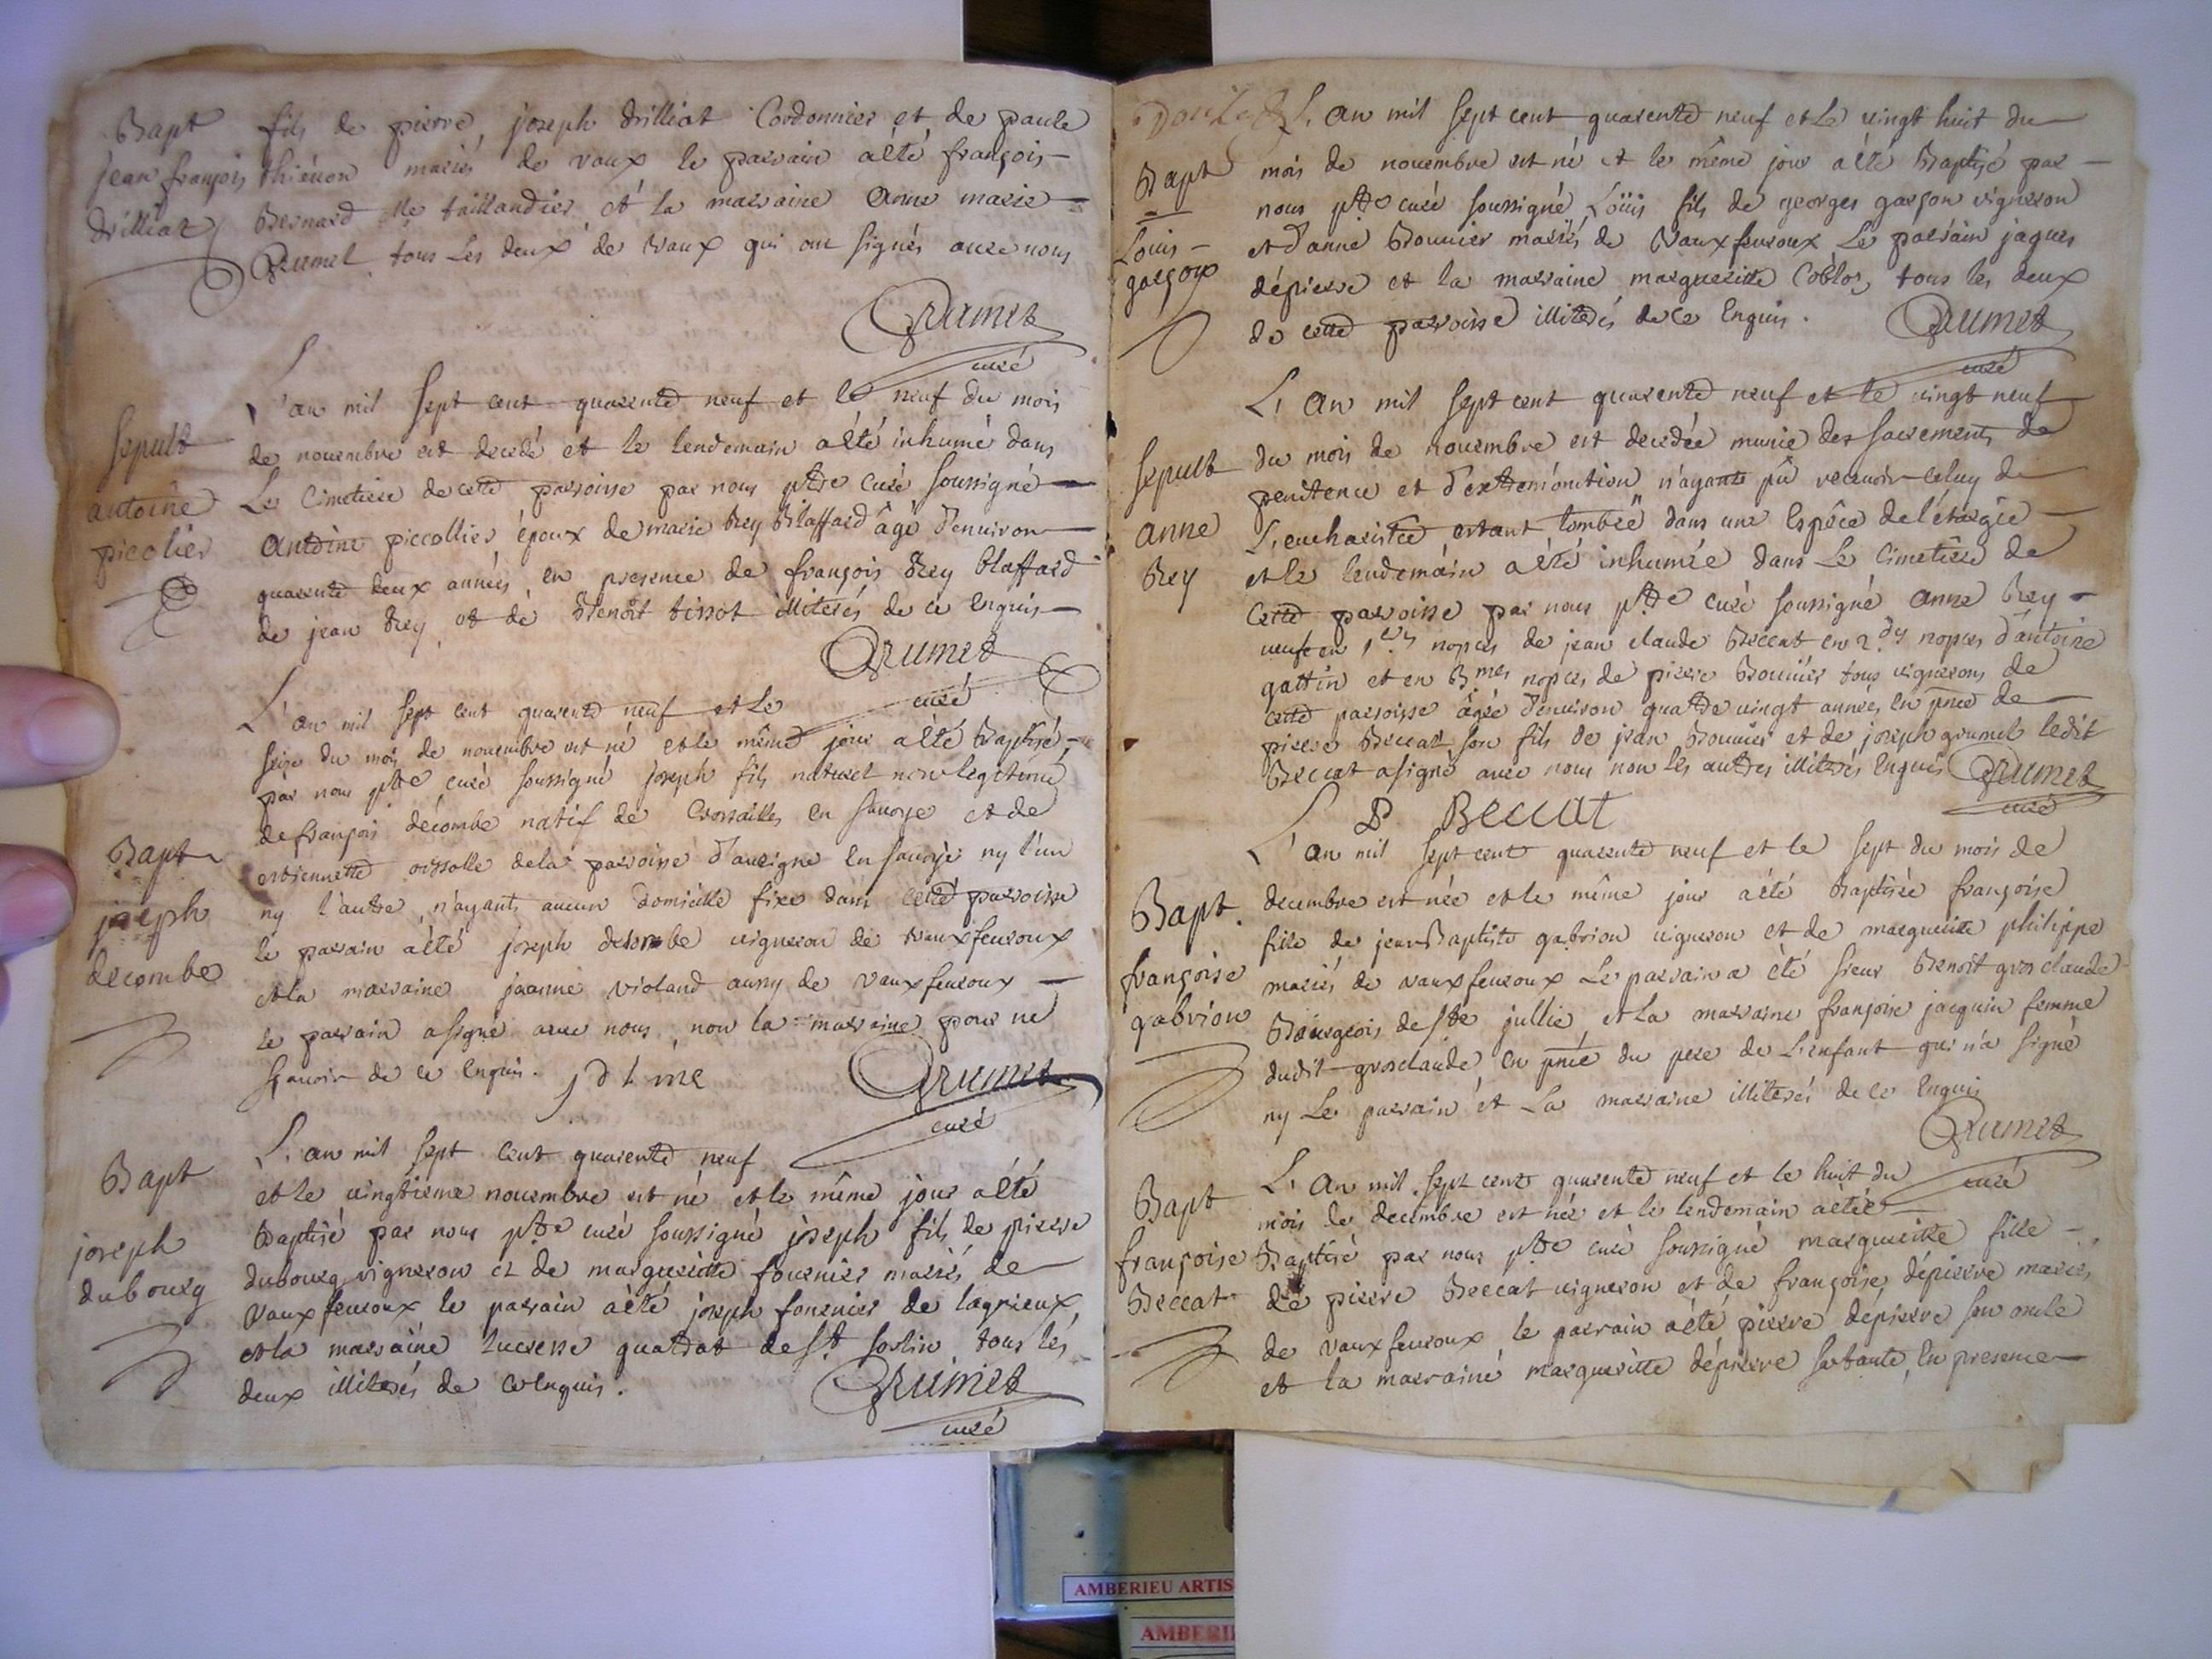 Bapt
jean françois
drilliat
fils de pierre joseph drilliat Cordonnier et de paule
thiénon mariés de vaux le parrain a été françois
Bernard Me taillandier et la marraine anne marie
Grumel tous Les deux de vaux qui ont signés avec nous
Grumet
curé
Sepult
antoine
picolier
L'an mil sept cent quarente neuf et le neuf du mois
de novembre est decedé et le lendemain a été inhumé dans
Le Cimetiere de cette parroisse par nous ptre Curé soussigné
Antoine piccollier époux de marie Rey Blaffard âgé d'environ
quarente deux années en presence de françois Rey blaffard
de jean Rey et de Benoît tissot illiterés de ce Enquis
Grumet
curé
Bapt
joseph
decombe
L'an mil sept cent quarente neuf et le
seise du mois de novembre est né et le même jour a été Baptisé
par nous ptre curé soussigné joseph fils naturel non legitime
de françois décombe natif de en savoye et de
estiennette de la parroisse d'aveigne en savoye ny l'un
ny l'autre n'ayants aucun domicille fixe dans cette parroisse
le parrain a été joseph vigneron de vauxfevroux
et la marraine jeanne violand aussy de vauxfevroux
le parrain a signé avec nous non la marraine pour ne
sçavoir de ce enquis.
Grumet
curé
Bapt
joseph
dubourg
L'an mil sept cent quarente neuf
et le vingtieme novembre est né et le même jour a été
Baptisé par nous ptre curé soussigné joseph fils de pierre
dubourg vigneron et de margueritte fournier mariés de
vauxfevroux le parrain a été joseph fournier de lagnieux
et la marraine lucresse quattrat de st sorlin tous les
deux illiterés de ce Enquis.
Grumet
curé
Bapt
Louis
garçon
L'an mil sept cent quarente neuf et Le vingt huit du
mois de novembre est né et le même jour a été Baptisé par
nous ptre curé soussigné Loüis fils de georges garçon vigneron
et d'anne Bouvier mariés de Vauxfevroux Le parrain jaques
dépierre et la marraine margueritte tous les deux
de cette parroisse illiterés de ce Enquis.
Grumet
curé
Sepult
anne
Rey
L'an mil sept cent quarente neuf et le vingt neuf
du mois de novembre est decedée munie des sacrements de
penitence et d'extremonction n'ayante pû recevoir celuy de
L'eucharistie estant tombée dans une Espêce de létargie
et le lendemain a été inhumée dans Le Cimetiere de
Cette parroisse par nous ptre curé soussigné Anne Rey
veuve en 1eres nopces de jean claude Beccat en 2des nopces d'antoine
gattin et en 3mes nopces de pierre Bouvier tous vignerons de
cette parroisse âgée d'environ quatre vingt années en pnce de
pierre Beccat son fils de jean Bouvier et de joseph grumel ledit
Beccat a signé avec nous non les autres illiterés Enquis
Grumet
curé
P Beccat
Bapt.
françoise
gabrion
L'an mil sept cent quarente neuf et le sept du mois de
decembre est née et le même jour a été Baptisée françoise
fille de jean Baptiste gabrion vigneron et de margueritte philippe
mariés de vauxfevroux Le parrain a été sieur Benoit gros claude
Bourgeois de ste jullie et La marraine françoise jacquin femme
dudit grosclaude en pnce du pere de L'enfant qui n'a signé
ny Le parrain et La marraine illiterés de ce Enquis
Grumet
curé
Bapt
françoise
Béccat
L'An mil sept cent quarente neuf et le huit du
mois de decembre est née et le lendemain a étée
Baptisé par nous ptre curé soussigné margueritte fille
de pierre Beccat vigneron et de françoise dépierre mariés
de vauxfevroux le parrain a été pierre dépierre son oncle
et la marraine margueritte dépierre sa tante, En presence
AMBERIEU ARTIS